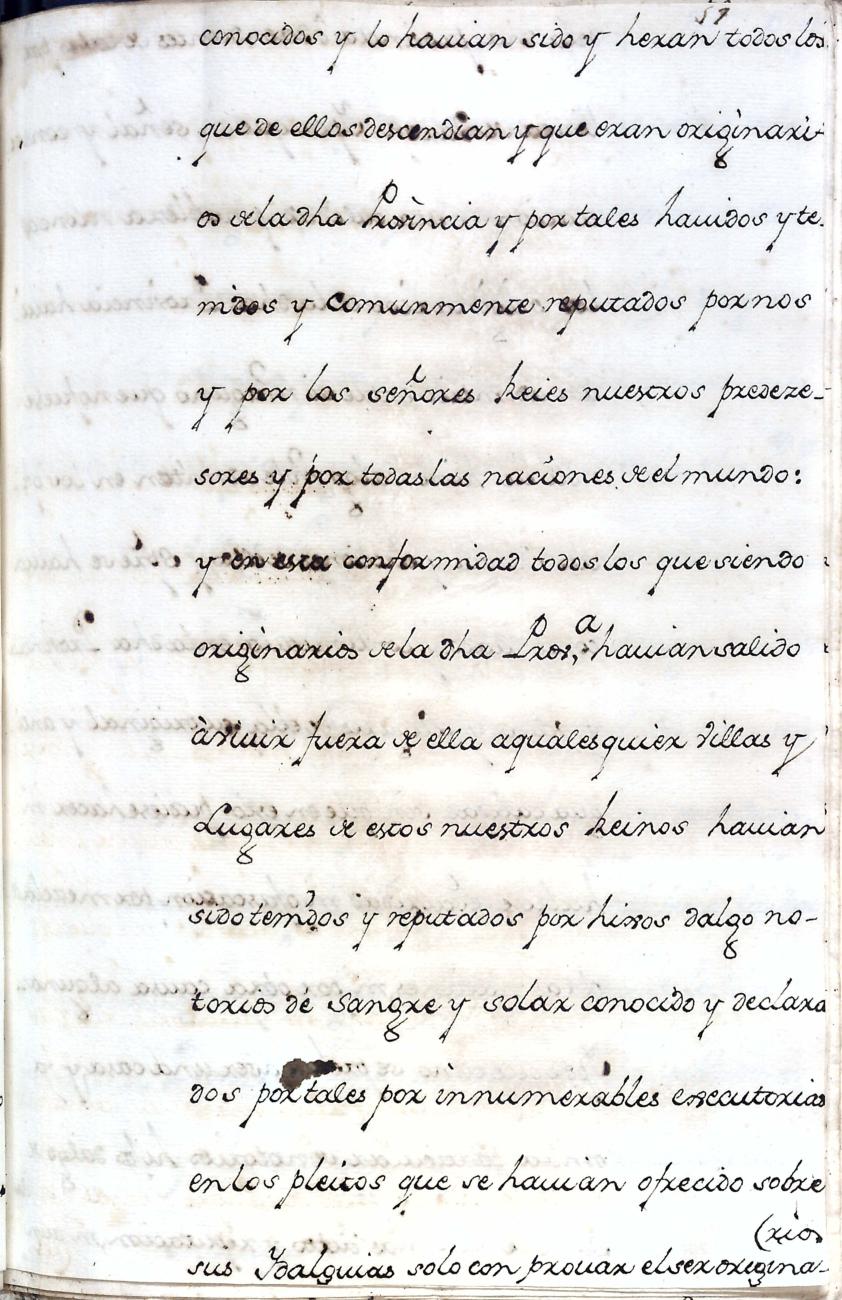 57
conocidos y lo hauian sido y heran todos los
que de ellos descendian y que eran originari-
os de la dha Provincia y por tales hauidos y te-
nidos y comunmente reputados por nos
y por los señores Reies nuestros predeze-
sores y por todas las naciones de el mundo:
y en esta conformidad todos los que siendo
originarios de la dha Prov,ª hauian salido
à viuir fuera de ella a qualesquier Villas y
Lugares de estos nuestros Reinos hauian
sido tenidos y reputados por hixos dalgo no-
torios de sangre y solar conocido y declara
dos por tales por innumerables executorias
en los pleitos que se hauian ofrecido sobre
sus Ydalguias solo con prouar el ser origina-
(rios